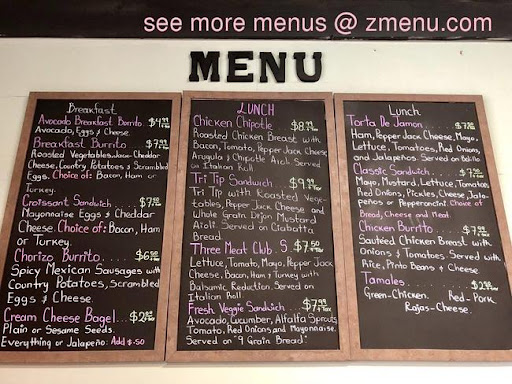 see more menus @ zmenu.com
MENU
Breakfast
Avocado Breakfast Burrito $4.99 + Tax
Avocado, Eggs & Cheese.
Breakfast Burrito $7.99 + Tax
Roasted Vegetables, Jack-Cheddar
Cheese, Country Potatoes & Scrambled
Eggs. Choice of: Bacon, Ham or
Turkey.
Croissant Sandwich
Mayonnaise Eggs & Cheddar
Cheese. Choice of: Bacon, Ham
or Turkey.
Chorizo Burrito
Spicy Mexican Sausages with
Country Potatoes, Scrambled
Eggs & Cheese.
Cream Cheese Bagel
Plain or Sesame Seeds.
Everything or Jalapeño: Add $.50
LUNCH
Chicken Chipotle $8.99 + Tax
Roasted Chicken Breast with
Bacon, Tomato, Pepper Jack Cheese
Arugula & Chipotle Aioli Served
on Italian Roll.
Tri Tip Sandwich $9.99 + Tax
Tri Tip with Roasted Vege-
tables, Pepper Jack Cheese and
Whole Grain Dijon Mustard
Aioli. Served on Ciabatta
Bread.
Three Meat Club S. $7.50 + Tax
Lettuce, Tomato, Mayo, Pepper Jack
Cheese, Bacon, Ham & Turkey with
Balsamic Reduction. Served on
Italian Roll.
Fresh Veggie Sandwich $7.99 + Tax
Avocado, Cucumber, Alfalfa Sprouts,
Tomato, Red Onions and Mayonnaise.
Served on "9 Grain Bread".
Lunch
Torta De Jamon
Ham, Pepper Jack Cheese, Mayo,
Lettuce, Tomatoes, Red Onions,
and Jalapeños. Served on Bolillo
Classic Sandwich
Mayo, Mustard, Lettuce, Tomatoes,
Red Onions, Pickles, Cheese, Jala-
peños or Pepperoncini. Choice of
Bread, Cheese and Meat.
Chicken Burrito $7.99
Sautéed Chicken Breast with
Onions & Tomatoes. Served with
Rice, Pinto Beans & Cheese.
Tamales
Green-Chicken. Red-Pork
Rojas-Cheese.